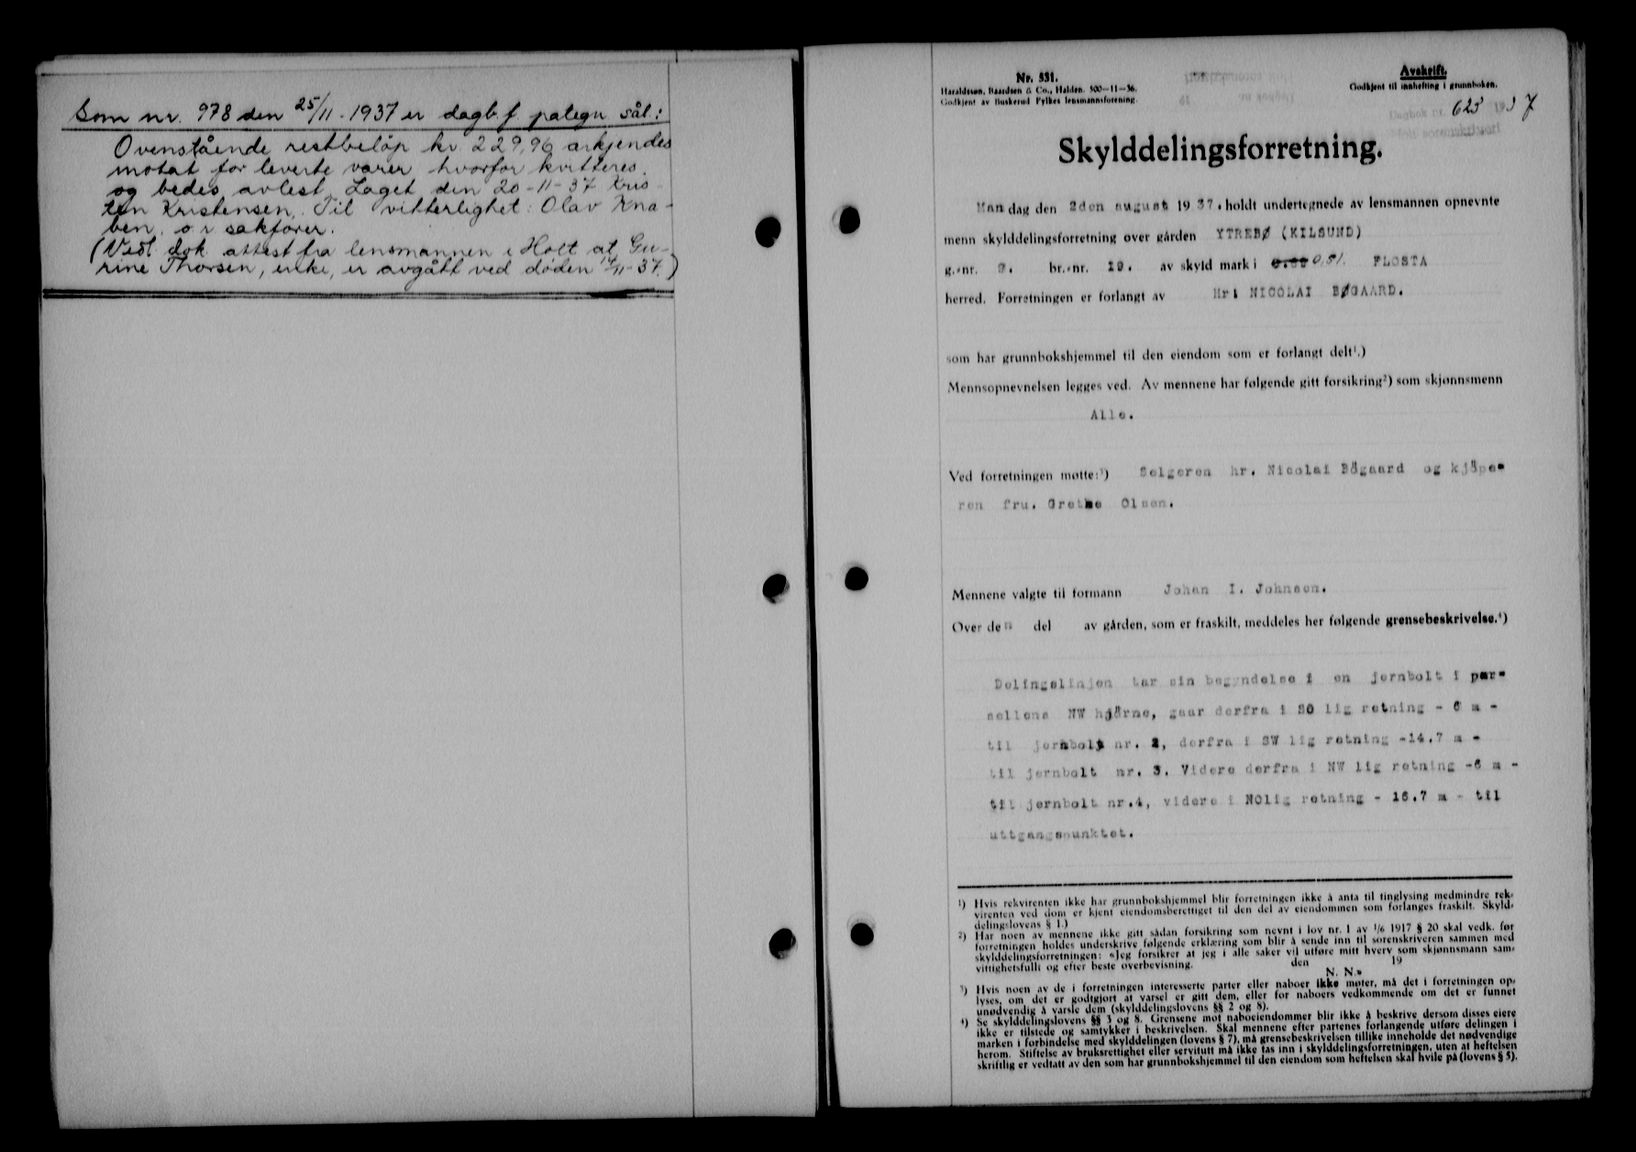 Som nr. 978 den 25/11-1937 er dagb.f. pategn sål:
Ovenstående restbeløp kr 229,96 erkjendes
motat for leverte varer hvorfor kvitteres
og bedes avlest. Laget den 20-11-37 Kris-
ten Kristensen. Til vitterlighet: Olav Kna-
ben, o.r sakfører.
(Vedl. dok. attest fra lensmannen i Holt at Gu-
rine Thorsen, enke, er avgått ved døden 14/11-37.)
Nr. 531.
Haraldssen, Baardsen & Co., Halden. 500-11-36.
Godkjent av Buskerud Fylkes lensmannsforening.
Avskrift.
Godkjent til innhefting i grunnboken.
Dagbok nr. 625 1937
Skylddelingsforretning.
Mandag den 2den august 1937. holdt undertegnede av lensmannen opnevnte
menn skylddelingsforretning over gården YTREBØ (KILSUND)
g.-nr. 9. br.-nr. 19. av skyld mark i 0,81. FLOSTA
herred. Forretningen er forlangt av Hr: NICOLAI BØGAARD.
som har grunnbokshjemmel til den eiendom som er forlangt delt¹.)
Mennsopnevnelsen legges ved. Av mennene har følgende gitt forsikring²) som skjønnsmenn
Alle.
Ved forretningen møtte:³) Selgeren hr. Nicolai Bögaard og kjöpe-
ren fru. Grethe Olsen.
Mennene valgte til formann Johan I. Johnsen.
Over den del av gården, som er fraskilt, meddeles her følgende grensebeskrivelse.⁴)
Delingslinjen tar sin begyndelse i en jernbolt i par-
sellens NW hjörne, gaar derfra i SO lig retning - 6 m -
til jernbolt nr. 2, derfra i SW lig retning -14.7 m -
til jernbolt nr. 3. Videre derfra i NW lig retning -6 m -
til jernbolt nr.4, videre i NOlig retning - 16.7 m - til
uttgangspunktet.
¹) Hvis rekvirenten ikke har grunnbokshjemmel blir forretningen ikke å anta til tinglysing medmindre rek-
virenten ved dom er kjent eiendomsberettiget til den del av eiendommen som forlanges fraskilt. Skyld-
delingslovens § 1.)
²) Har noen av mennene ikke gitt sådan forsikring som nevnt i lov nr. 1 av 1/6 1917 § 20 skal vedk. før
forretningen holdes underskrive følgende erklæring som blir å sende inn til sorenskriveren sammen med
skylddelingsforretningen: «Jeg forsikrer at jeg i alle saker vil utføre mitt hverv som skjønnsmann sam-
vittighetsfullt og efter beste overbevisning. den 19
N. N.»
³) Hvis noen av de i forretningen interesserte parter eller naboer ikke møter, må det i forretningen op-
lyses, om det er godtgjort at varsel er gitt dem, eller for naboers vedkommende om det er funnet
unødvendig å varsle dem (skylddelingslovens §§ 2 og 8).
⁴) Se skylddelingslovens §§ 3 og 8. Grensene mot naboeiendommer blir ikke å beskrive dersom disses eiere
ikke er tilstede og samtykker i beskrivelsen. Skal mennene efter partenes forlangende utføre delingen i
marken i forbindelse med skylddelingen (lovens § 7), må grensebeskrivelsen tillike inneholde det nødvendige
herom. Stiftelse av bruksrettighet eller servitutt må ikke tas inn i skylddelingsforretningen, uten at heftelsen
skriftlig er vedtatt av den som har grunnbokshjemmel til den eiendom som heftelsen skal hvile på (lovens § 5).